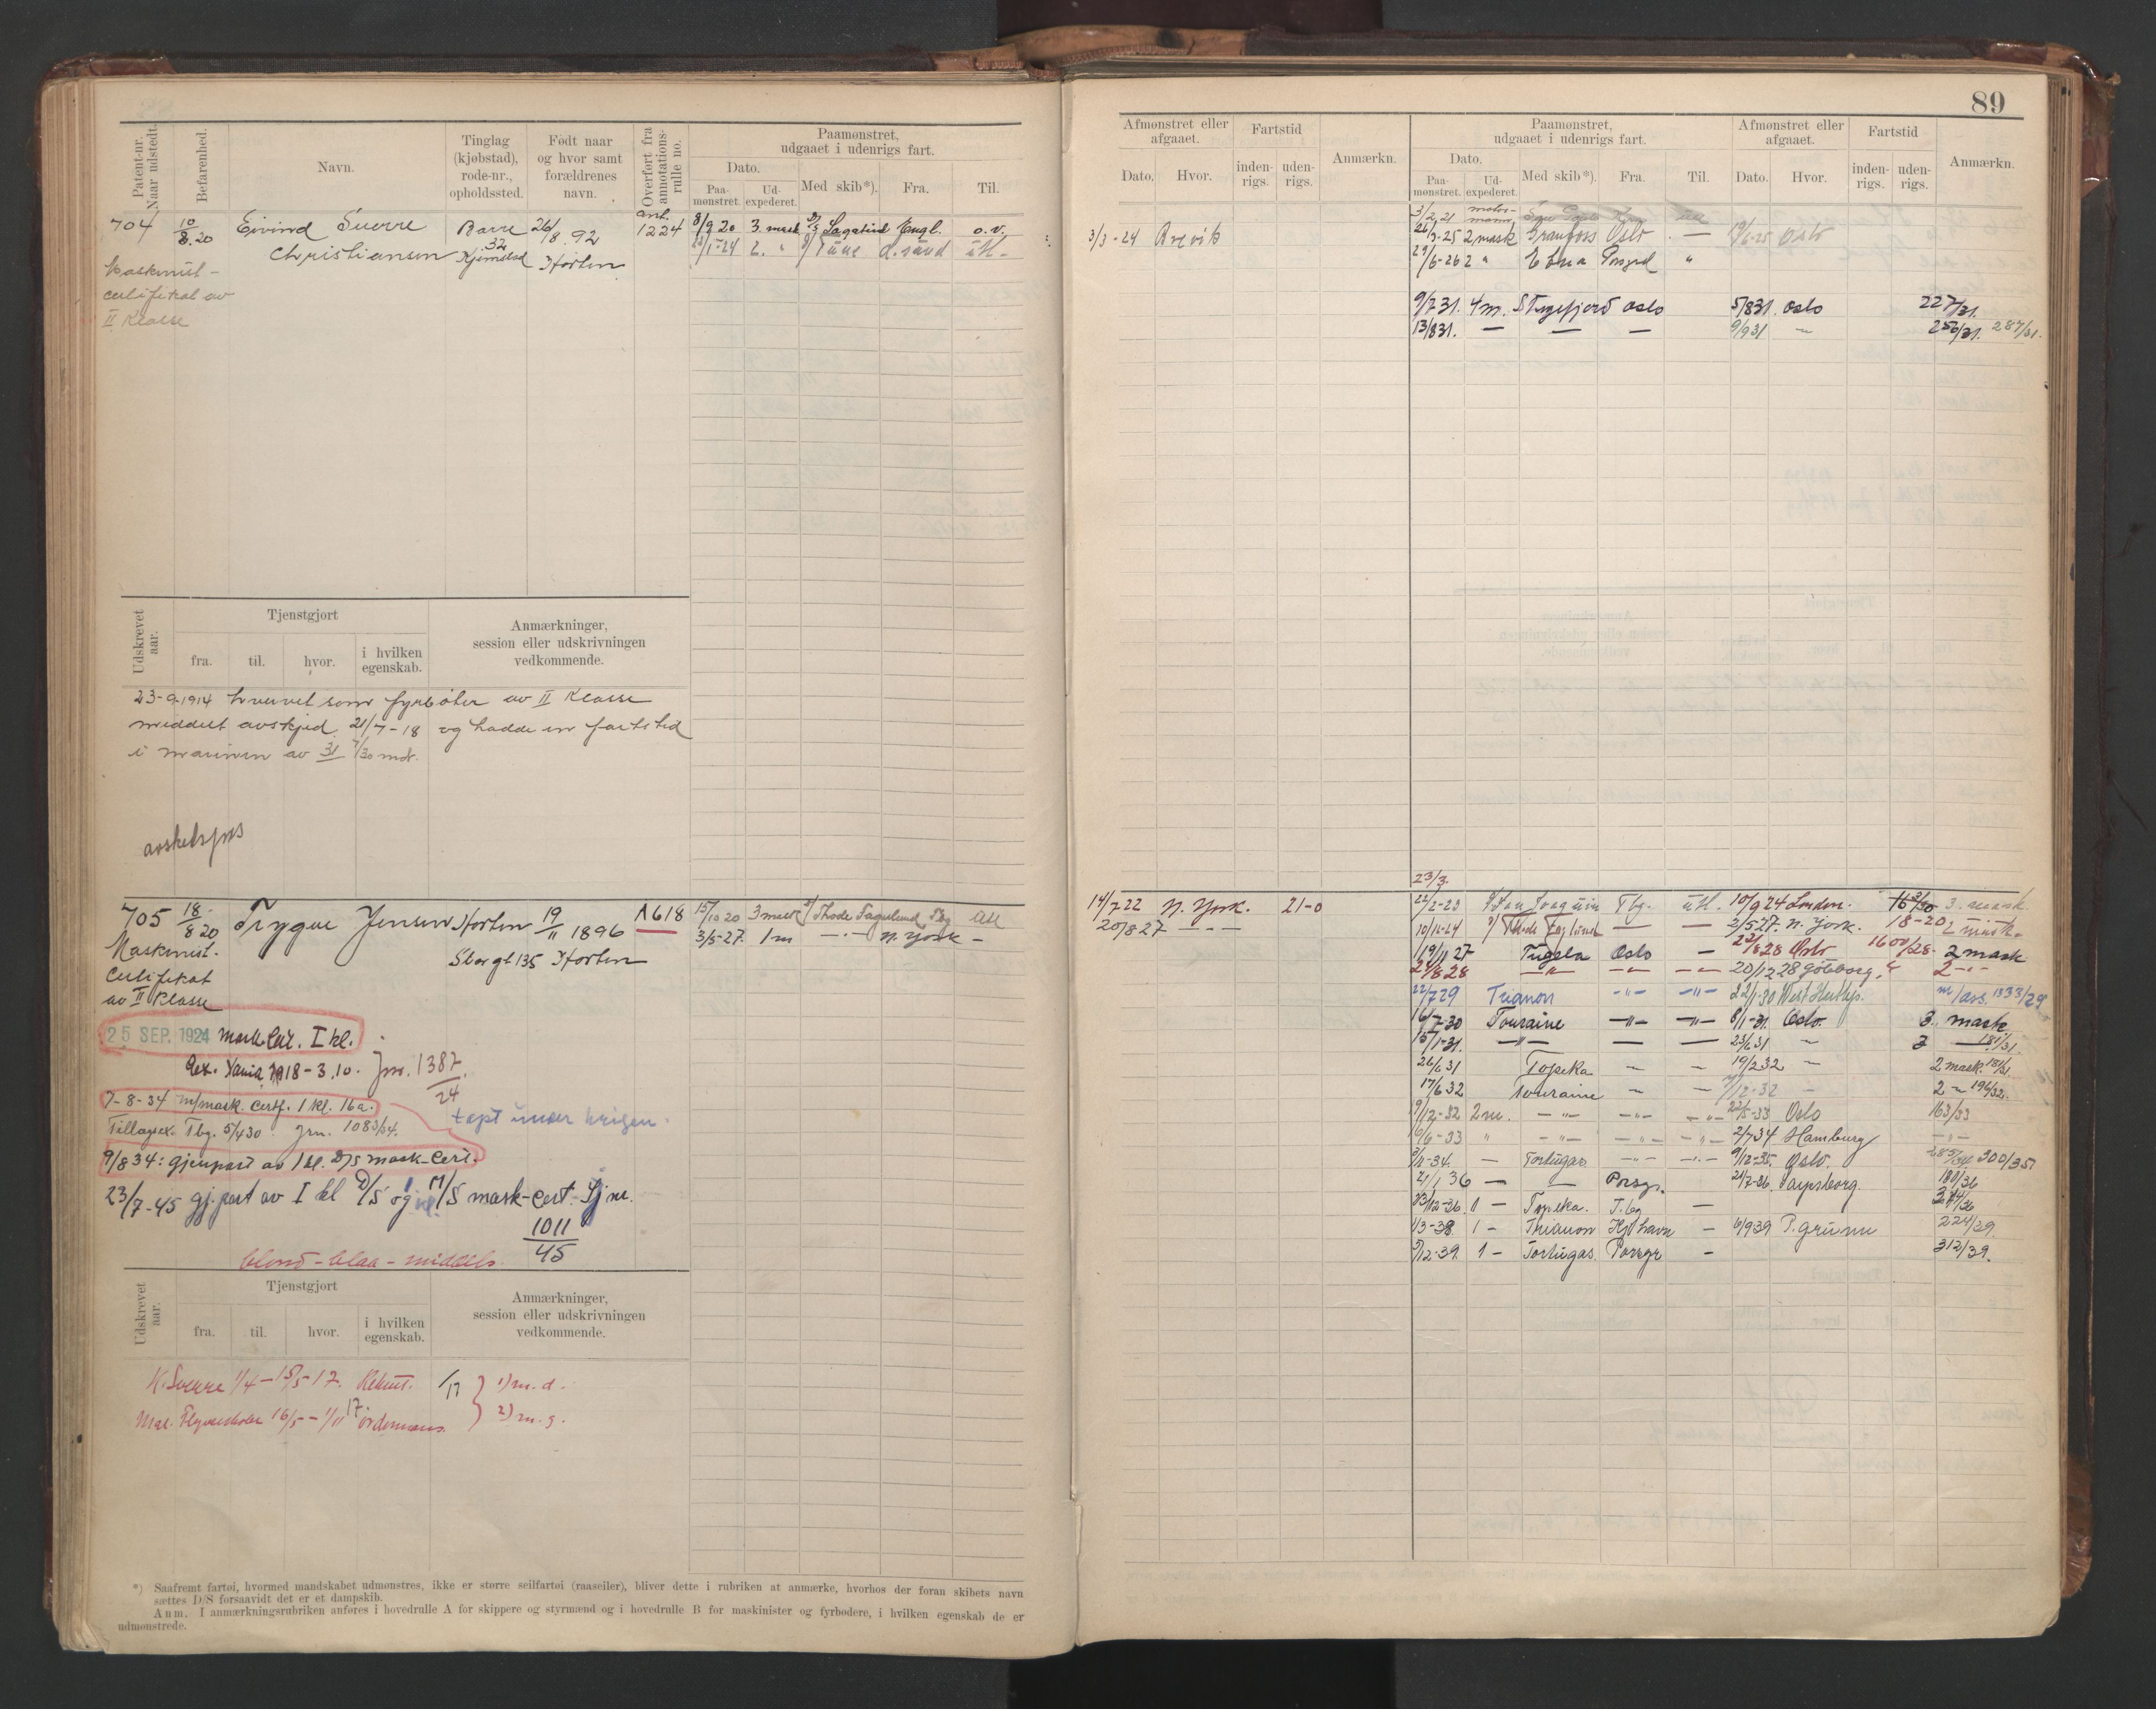 89
Patent-nr. Naar udstedt.
Befarenhed.
Navn.
Tinglag (kjøbstad), rode-nr., opholdssted.
Født naar og hvor samt forældrenes navn.
Overført fra annotations-rulle no.
Paamønstret, udgaaet i udenrigs fart.
Dato.
Paa-mønstret.
Ud-expederet.
Med skib*).
Fra.
Til.
704 10/8.20 Eivind Sverre Borre 26/8.92 ant. 1224 8/9 20 3. mask D/S Sagatind Engl. o.v.
Christiansen 32 Kjemstad Horten 1-24 2. " Tüne
Maskinist-
certifikat av
II Klasse
Udskrevet aar.
Tjenstgjort
fra. til. hvor. i hvilken egenskab.
Anmærkninger, session eller udskrivningen vedkommende.
23-9-1914 hvervet som fyrbøter av II Klasse
meddelt avskjed 21/7-18 og hadde en fartstid
i marinen av 31 7/30 mdr.
705 18/8 20 Trygve Jensen Horten 19/11 1896 A618 15/10 20 3 mask D/ Thode Fagelund Tbg Utl
Storgt 135 Horten 3/5-27. 1 m —"— N. York —
Maskinist-
Certifikat
av II Klasse
25 SEP. 1924 mask. Cer. I kl.
Eex. Xania 1918-3.10. Jnr. 1387/24
7-8-34 m/mask. certf. 1 kl. 16a.
Tillægsex. Tbg. 5/430. Jrn. 1083/34.
tapt under krigen.
9/8 34: gjenpart av 1 kl. D/S mask-Cert.
23/7-45 gj.part av I kl D/S og I kl. M/S mask-cert. Jnr.
1011/45
blond - blaa - middels
Udskrevet aar.
Tjenstgjort
fra. til. hvor. i hvilken egenskab.
Anmærkninger, session eller udskrivningen vedkommende.
H. Sverre 1/4-15/5-17. Rekrut. 1/17 1) m. d.
Mar. Flyveskole 16/5-1/11 17. ordonnans. 2) m. g.
*) Saafremt fartøi, hvormed mandskabet udmønstres, ikke er større seilfartøi (raaseiler), bliver dette i rubriken at anmærke, hvorhos der foran skibets navn
sættes D/S forsaavidt det er et dampskib.
Anm. I anmærkningsrubriken anføres i hovedrulle A for skippere og styrmænd og i hovedrulle B for maskinister og fyrbødere, i hvilken egenskab de er
udmønstrede.
Afmønstret eller afgaaet.
Dato. Hvor.
Fartstid
inden-rigs. uden-rigs.
Anmærkn.
Paamønstret, udgaaet i udenrigs fart.
Dato.
Paa-mønstret. Ud-expederet.
Med skib*). Fra. Til.
Afmønstret eller afgaaet.
Dato. Hvor.
Fartstid
inden-rigs. uden-rigs.
Anmærkn.
3/2 21 motor-mann
3/3-24 Brevik 26/3-25 2 mask Granfoss Oslo — 19/6-25 Oslo
29/6-26 2 " Edna Porsgrd "
9/7 31. 4 m. S Tyrifjord Oslo 5/8 31. Oslo 227/31.
13/8 31. — — — 9/9 31 — 256/31. 287/31.
23/3.
14/7 22 N. York. 21-0 22/2-23 San Joaquin Tbg. Utl. 10/9 24 London. 16 3/30 3. mask
20/8 27 —"— 10/11-24 Thode Fagelund — — 2/5 27. N. York. 18-20 2 mask.
19/11 27 Tugela Oslo — 22/8 28 Oslo 1600/28. 2 mask
24/8 28 —"— —"— —"— 20/12 28 Göteborg. 2 —"—
22/7 29 Trianon —"— —"— 22/1-30 West Hartlep. m/ass. 1333/29
16/7-30 Touraine —"— —"— 8/1-31. Oslo. 3. mask
15/1-31. —"— — — 23/6 31 — 3 — 181/31.
26/6 31 Topeka — — 19/2 32 — 2 mask. 181/31
17/6 32 Touraine — — 12-32 — 2 — 196/32.
19/12-32 2 m. —"— —"— —"— 22/5-33 Oslo 163/33
6-33 " —"— —"— —"— 2/7 34 Hamburg —"—
11-34. — Tortugas —"— —"— 9/12-35. Oslo. 300/35
21/1 36 — — Porsgr. 21/7-36. Sarpsborg. 180/36
23/12-36. 1 — Topeka. T.bg — 374/36
3-38. 1 — Trianon Kjbhavn — 6/9 39 P. grunn 224/39.
5/12-39. 1 — Tortugas Porsgr — 312/39.